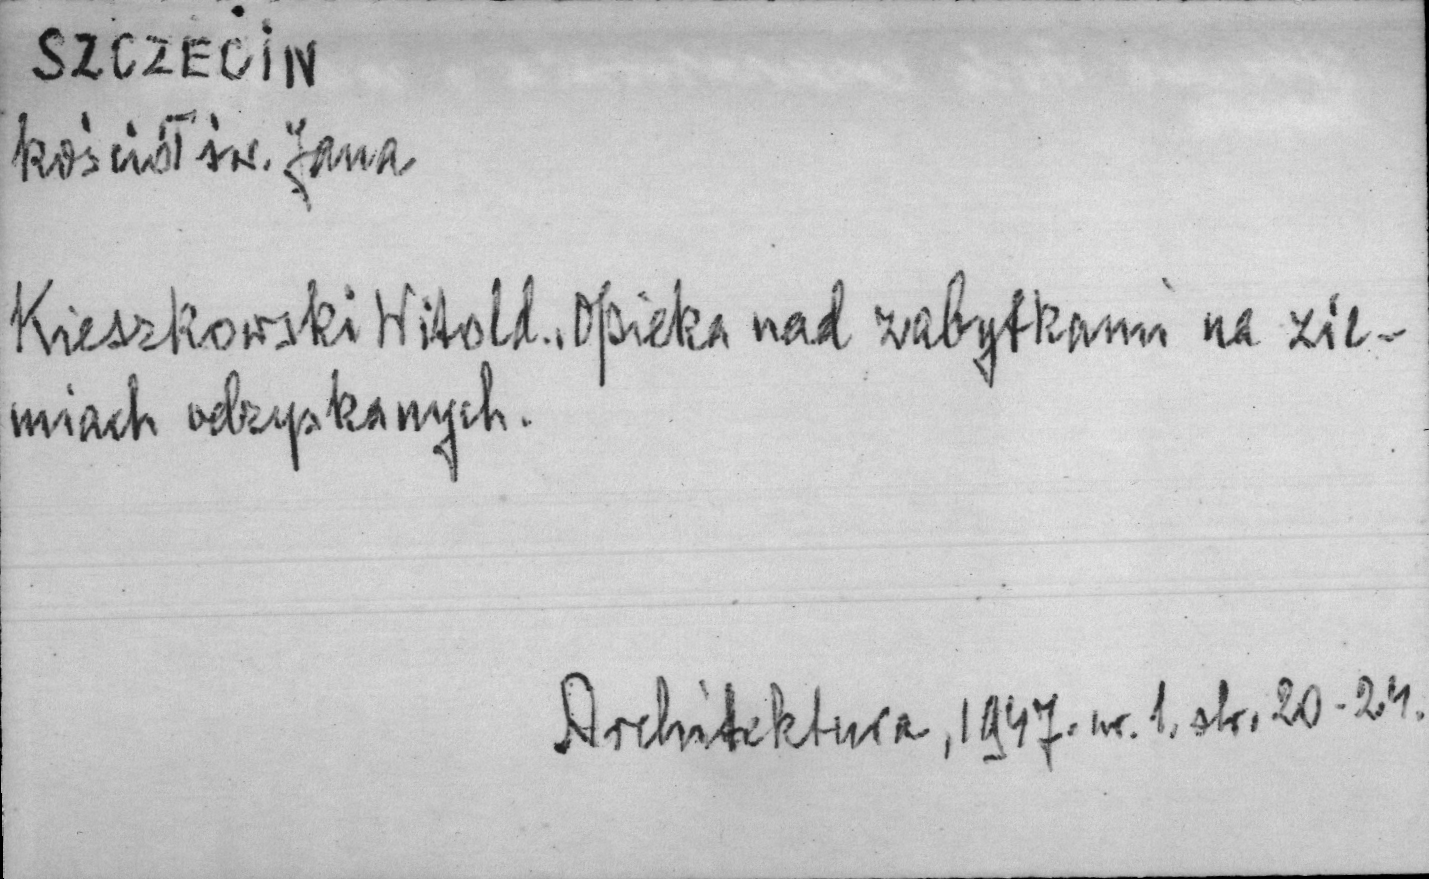 SZCZECIN
kościół św. Jana
Kieszkowski Witold., Opieka nad zabytkami na zie-
miach odzyskanych.
Architektura, 1947. nr. 1. str. 20-24.